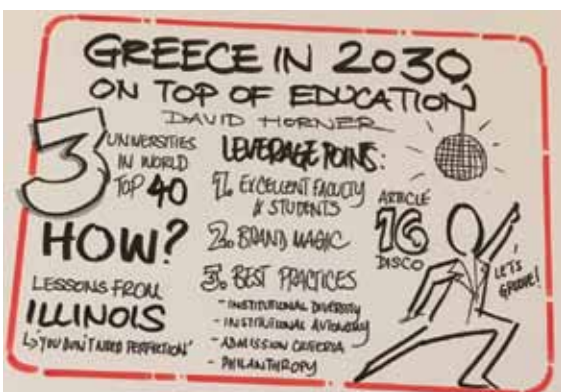 GREECE IN 2030
ON TOP OF EDUCATION
DAVID HORNER
3 UNIVERSITIES
IN WORLD
TOP 40
HOW?
LESSONS FROM
ILLINOIS
↳ 'YOU DON'T NEED PERFECTION'
LEVERAGE POINTS:
1. EXCELLENT FACULTY
& STUDENTS
2. BRAND MAGIC
3. BEST PRACTICES
- INSTITUTIONAL DIVERSITY
- INSTITUTIONAL AUTONOMY
- ADMISSION CRITERIA
- PHILANTHROPY
ARTICLE
16
DISCO
LET'S
GROOVE!